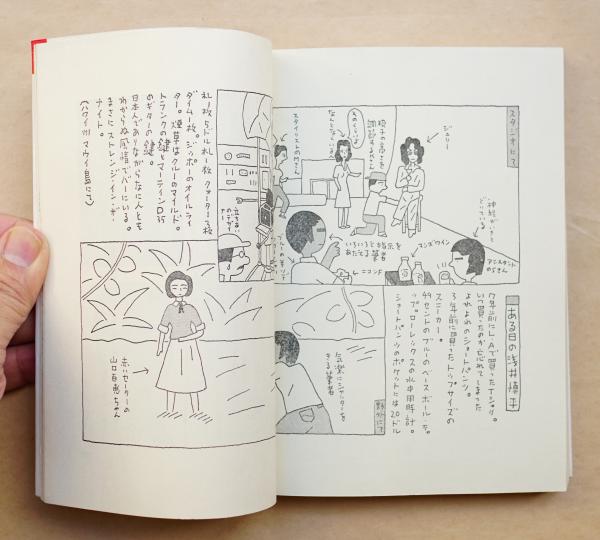 スタジオにて
ジュリー
椅子の高さを
調節するMさん
ものすごいよ
なんとなくいいよ
スタイリストのMさん
神経がいきと
どいている
マンズワイン
アシスタント
のSさん
いろいろと指示を
あたえる筆者
ニコンF
ブルーの単リブ
立ちあい
のマネージャー
ある日の浅井慎平
7年前にL.A.で買ったTシャツ。
いつ買ったのか忘れてしまった
よれよれのショートパンツ。
3年前に買ったトップサイズの
スニーカー。
49セントのブルーのベースボールキャ
ップ。ローレックスの水中用時計。
ショートパンツのポケットには20ドル
札1枚、5ドル札1枚、クォーター3枚、
ダイム一枚。ジッポーのオイルライ
ター。煙草はクルーのマイルド。
トランクの鍵とマーティンD35
のギターの鍵。
日本人でありながらなに人とも
わからぬ感情でバーにいる。
まさにストレンジ・イン・ザ・
ナイト。
(ハワイ州マウイ島にて)
野外にて
気楽にシャッターを
きる筆者
赤いセーターの
山口百恵ちゃん